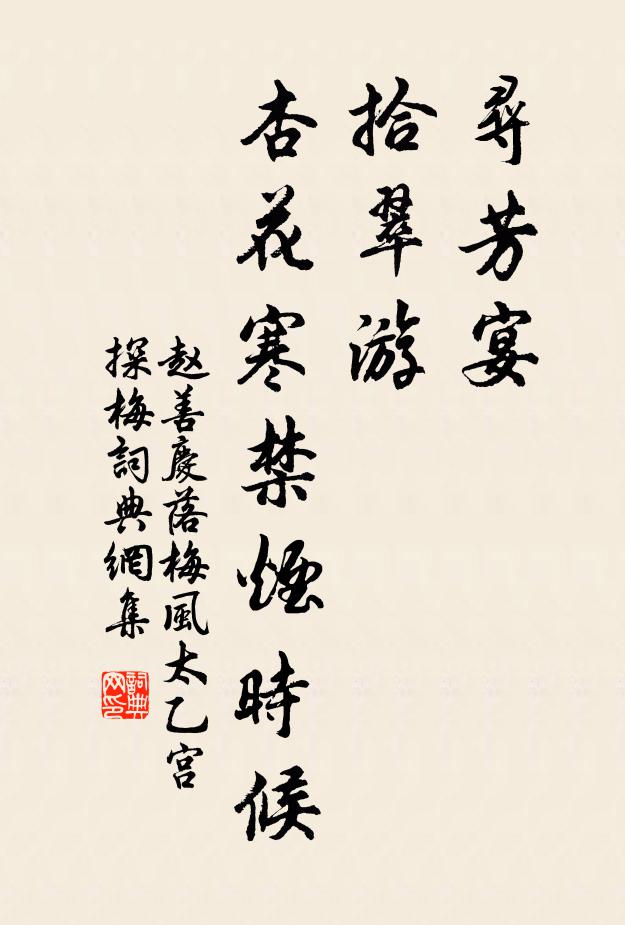 尋芳宴
拾翠游
杏花寒禁煙時候
赵善慶落梅風太乙宫
探梅詞典網集
詞典
网印